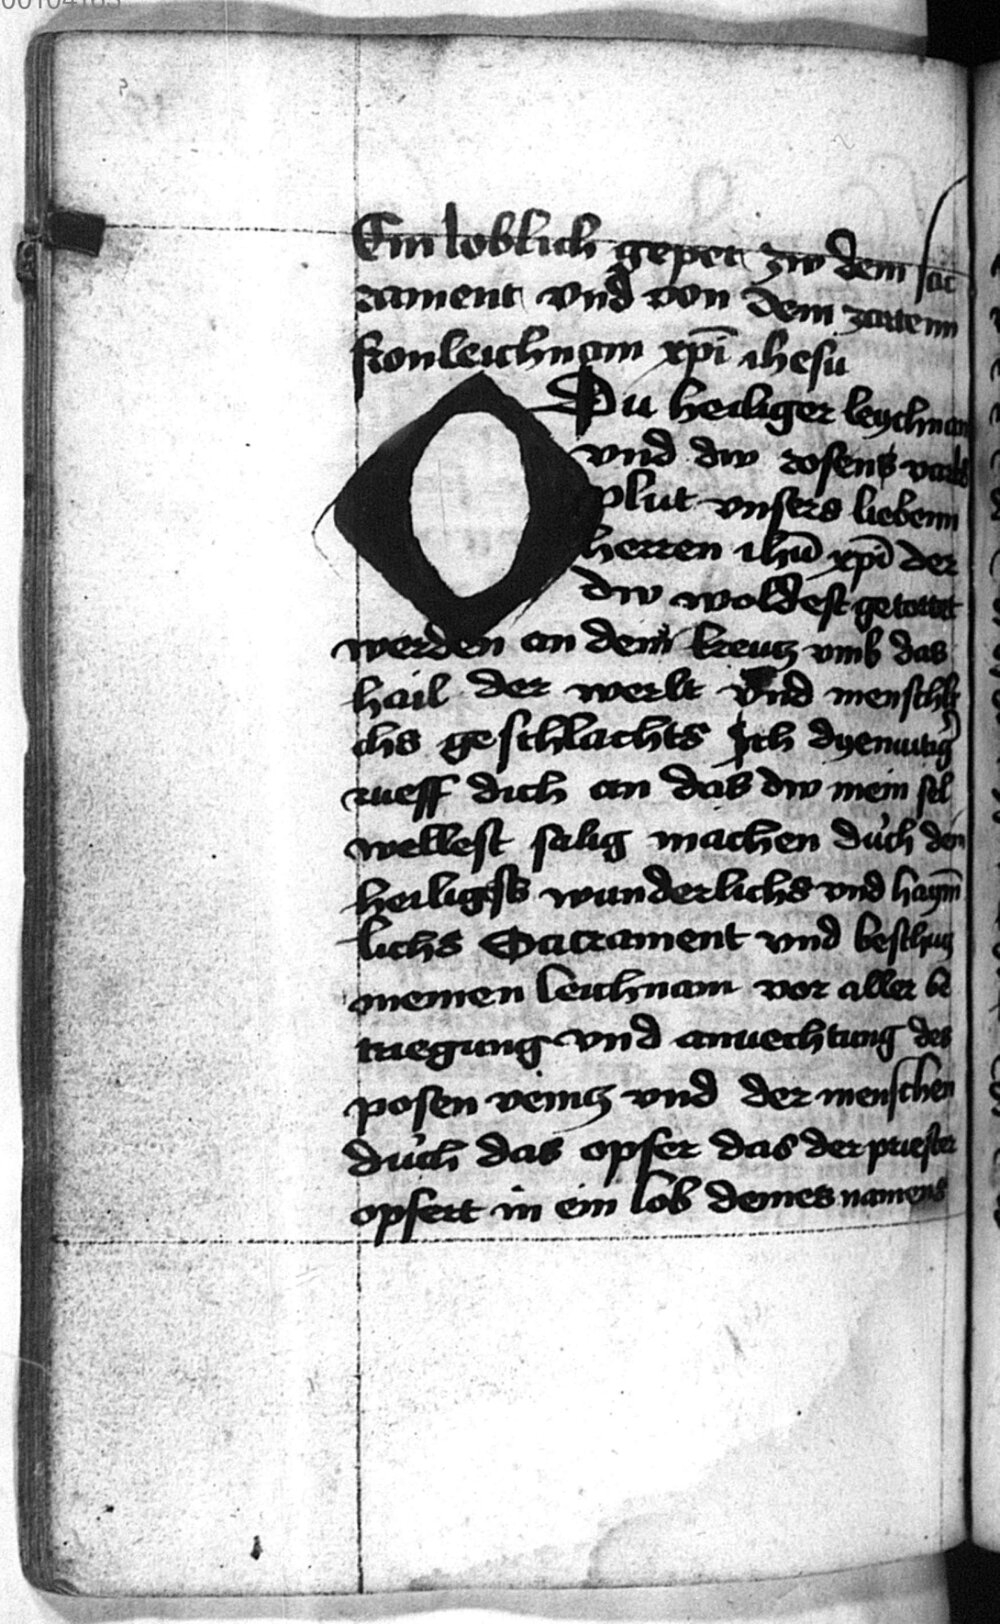 00104183
Ein loblich gepet zw dem sac
rament vnd von dem zartenn
fronleichnam xp̄i ihesu
O Du heiliger leychnam
vnd dw rosens varbs
plut vnsers liebenn
herren ihū xp̄i der
dw woldest getottet
werden an dem kreutz vmb das
hail der werlt vnd menschli
chs geschlachts Ich dyemutig
rueff dich an das dw mein sel
wellest salig machen duch den
heiligsts wunderlichs vnd haym̄
lichs Sacrament vnd beschug
meinen leichnam vor aller be
triegung vnd anuechtung des
posen veintz vnd der menschen
duch das opfer das der priester
opfert in ein lob deines namens